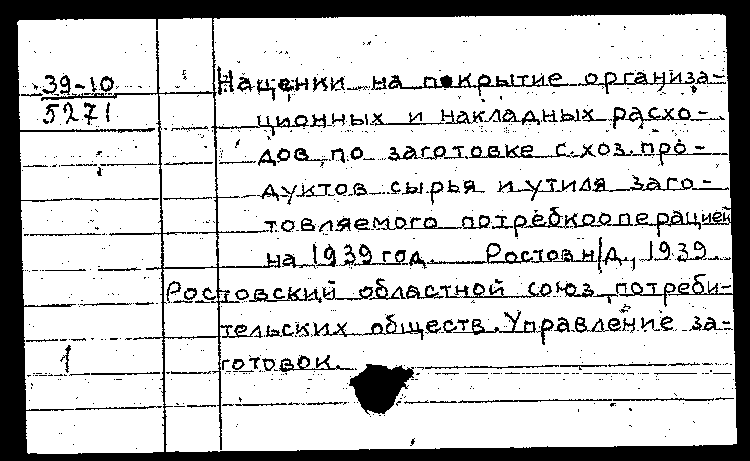 39-10
5271
Наценки на покрытие организа-
ционных и накладных расхо-
дов по заготовке с.хоз.про-
дуктов сырья и утиля заго-
товляемого потребкооперацией
на 1939 год. Ростов н/Д., 1939
Ростовский областной союз потреби-
тельских обществ. Управление за-
1
готовок.